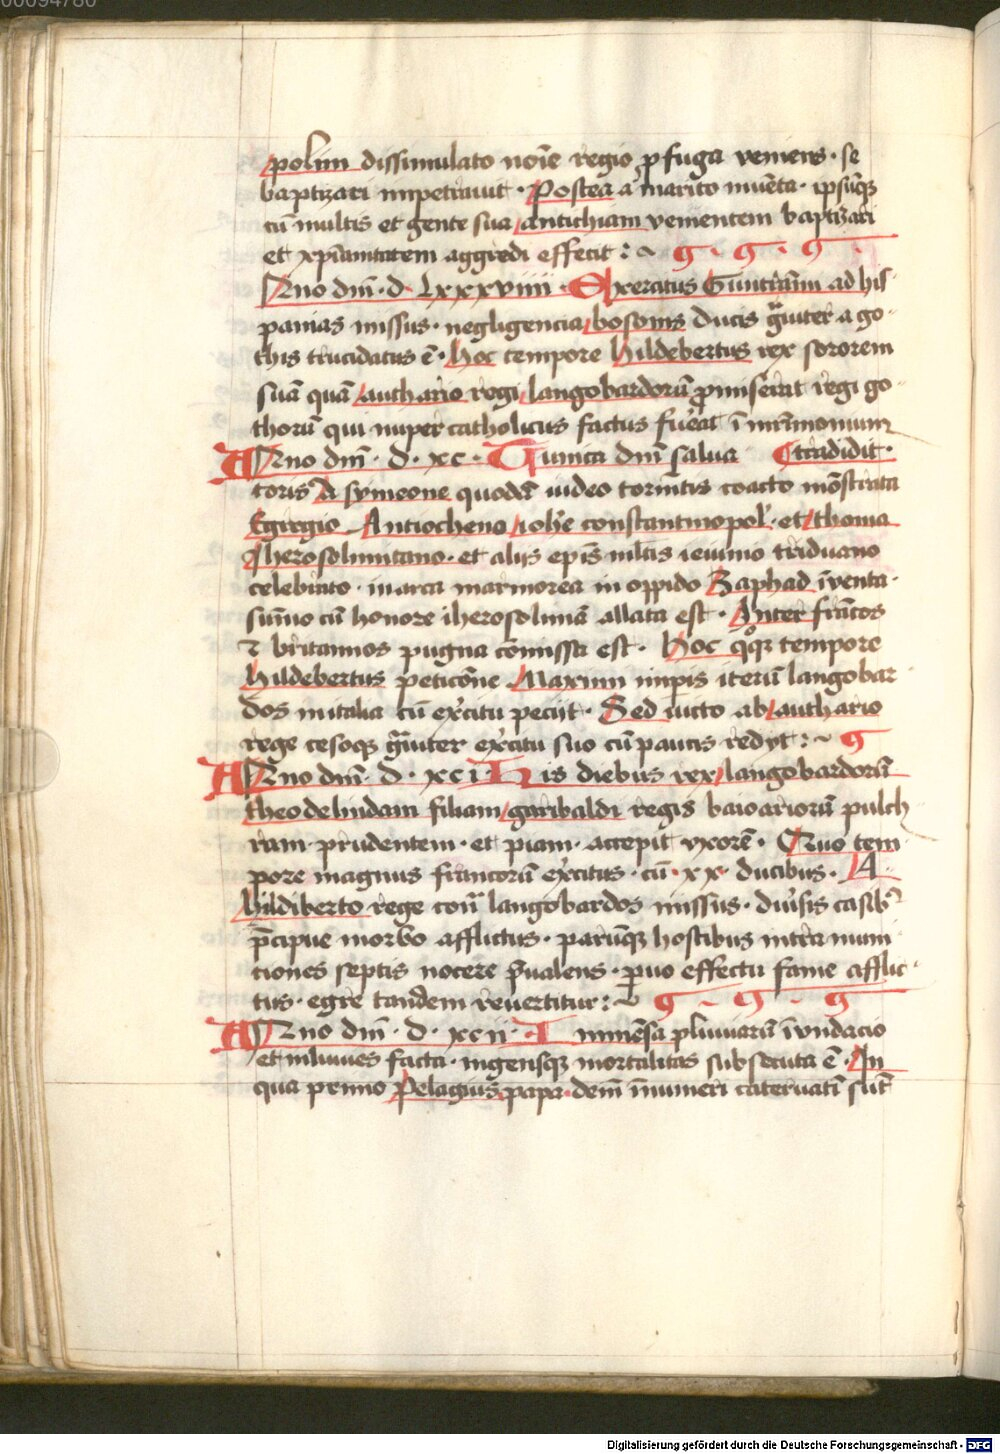 00094780
polim dissimulato noīe regio ꝓfuga veniens · se
baptizari impetrauit · Postea a marito inuēta · ipsūq̄ꝫ
cū multis et gente sua antichiam venientem baptizari
et xp̄ianitatem aggredi effecit : ~
Anno dn̄i · d · Lxxxviiii · Exercitus Guntrāni ad his
panias missus · negligencia bosonis ducis gᷓuiter a go
this trucidatus ē · Hoc tempore hildebertus rex sororem
suā quā authario regi langobardorū ꝓmiserat regi go
thorū qui nuper catholicus factus fu̓at ī mr̄imonium
Anno dn̄i · d · xc · Tunica dn̄i salua ¶ tradidit ·
toris A symeone quodā iudeo tormētis coacto mōstrata
Egregio Antiocheno ioh̄e constantinopol̓ · et thoma
Iherosolimitano · et alijs ep̄is ml̄tis ieiunio triduano
celebrato · in arca marmorea in oppido Zaphad īventa ·
sūmo cū honore iherosolimā allata est · Inter francos
⁊ britannos pugna cōmissa est · Hoc qͦqꝫ tempore
hildebertus peticōne Maximi imp̄is iterū langobar
dos in italia cū ex̓citu peciit · Sed victo ab authario
rege cesoqꝫ gᷓuiter ex̓citu suo cū paucis redijt : ~
Anno dn̄i · d · xci · His diebus rex langobardorū
theodelindam filiam garibaldi regis baioariorū pulch
ram · prudentem · et piam · accepit vxorē · Quo tem
pore magnus francorū ex̓citus · cū · xx · ducibus · A
hildiberto rege contᷓ langobardos missus · diu̓sis casibꝫ
p̄cipue morbo afflictus · parūqꝫ hostibus intra muni
ciones septis nocere p̄ualens · ꝑuo effectu fame afflic
tus · egre tandem reuertitur : ~
Anno dn̄i · d · xcii · Inmēsa pluuiarū īvndacio
et inluuies facta · ingensqꝫ mortalitas subsecuta ē · In
qua primo Pelagius papa · deīn īnumeri cateruatī sūt
Digitalisierung gefördert durch die Deutsche Forschungsgemeinschaft - DFG